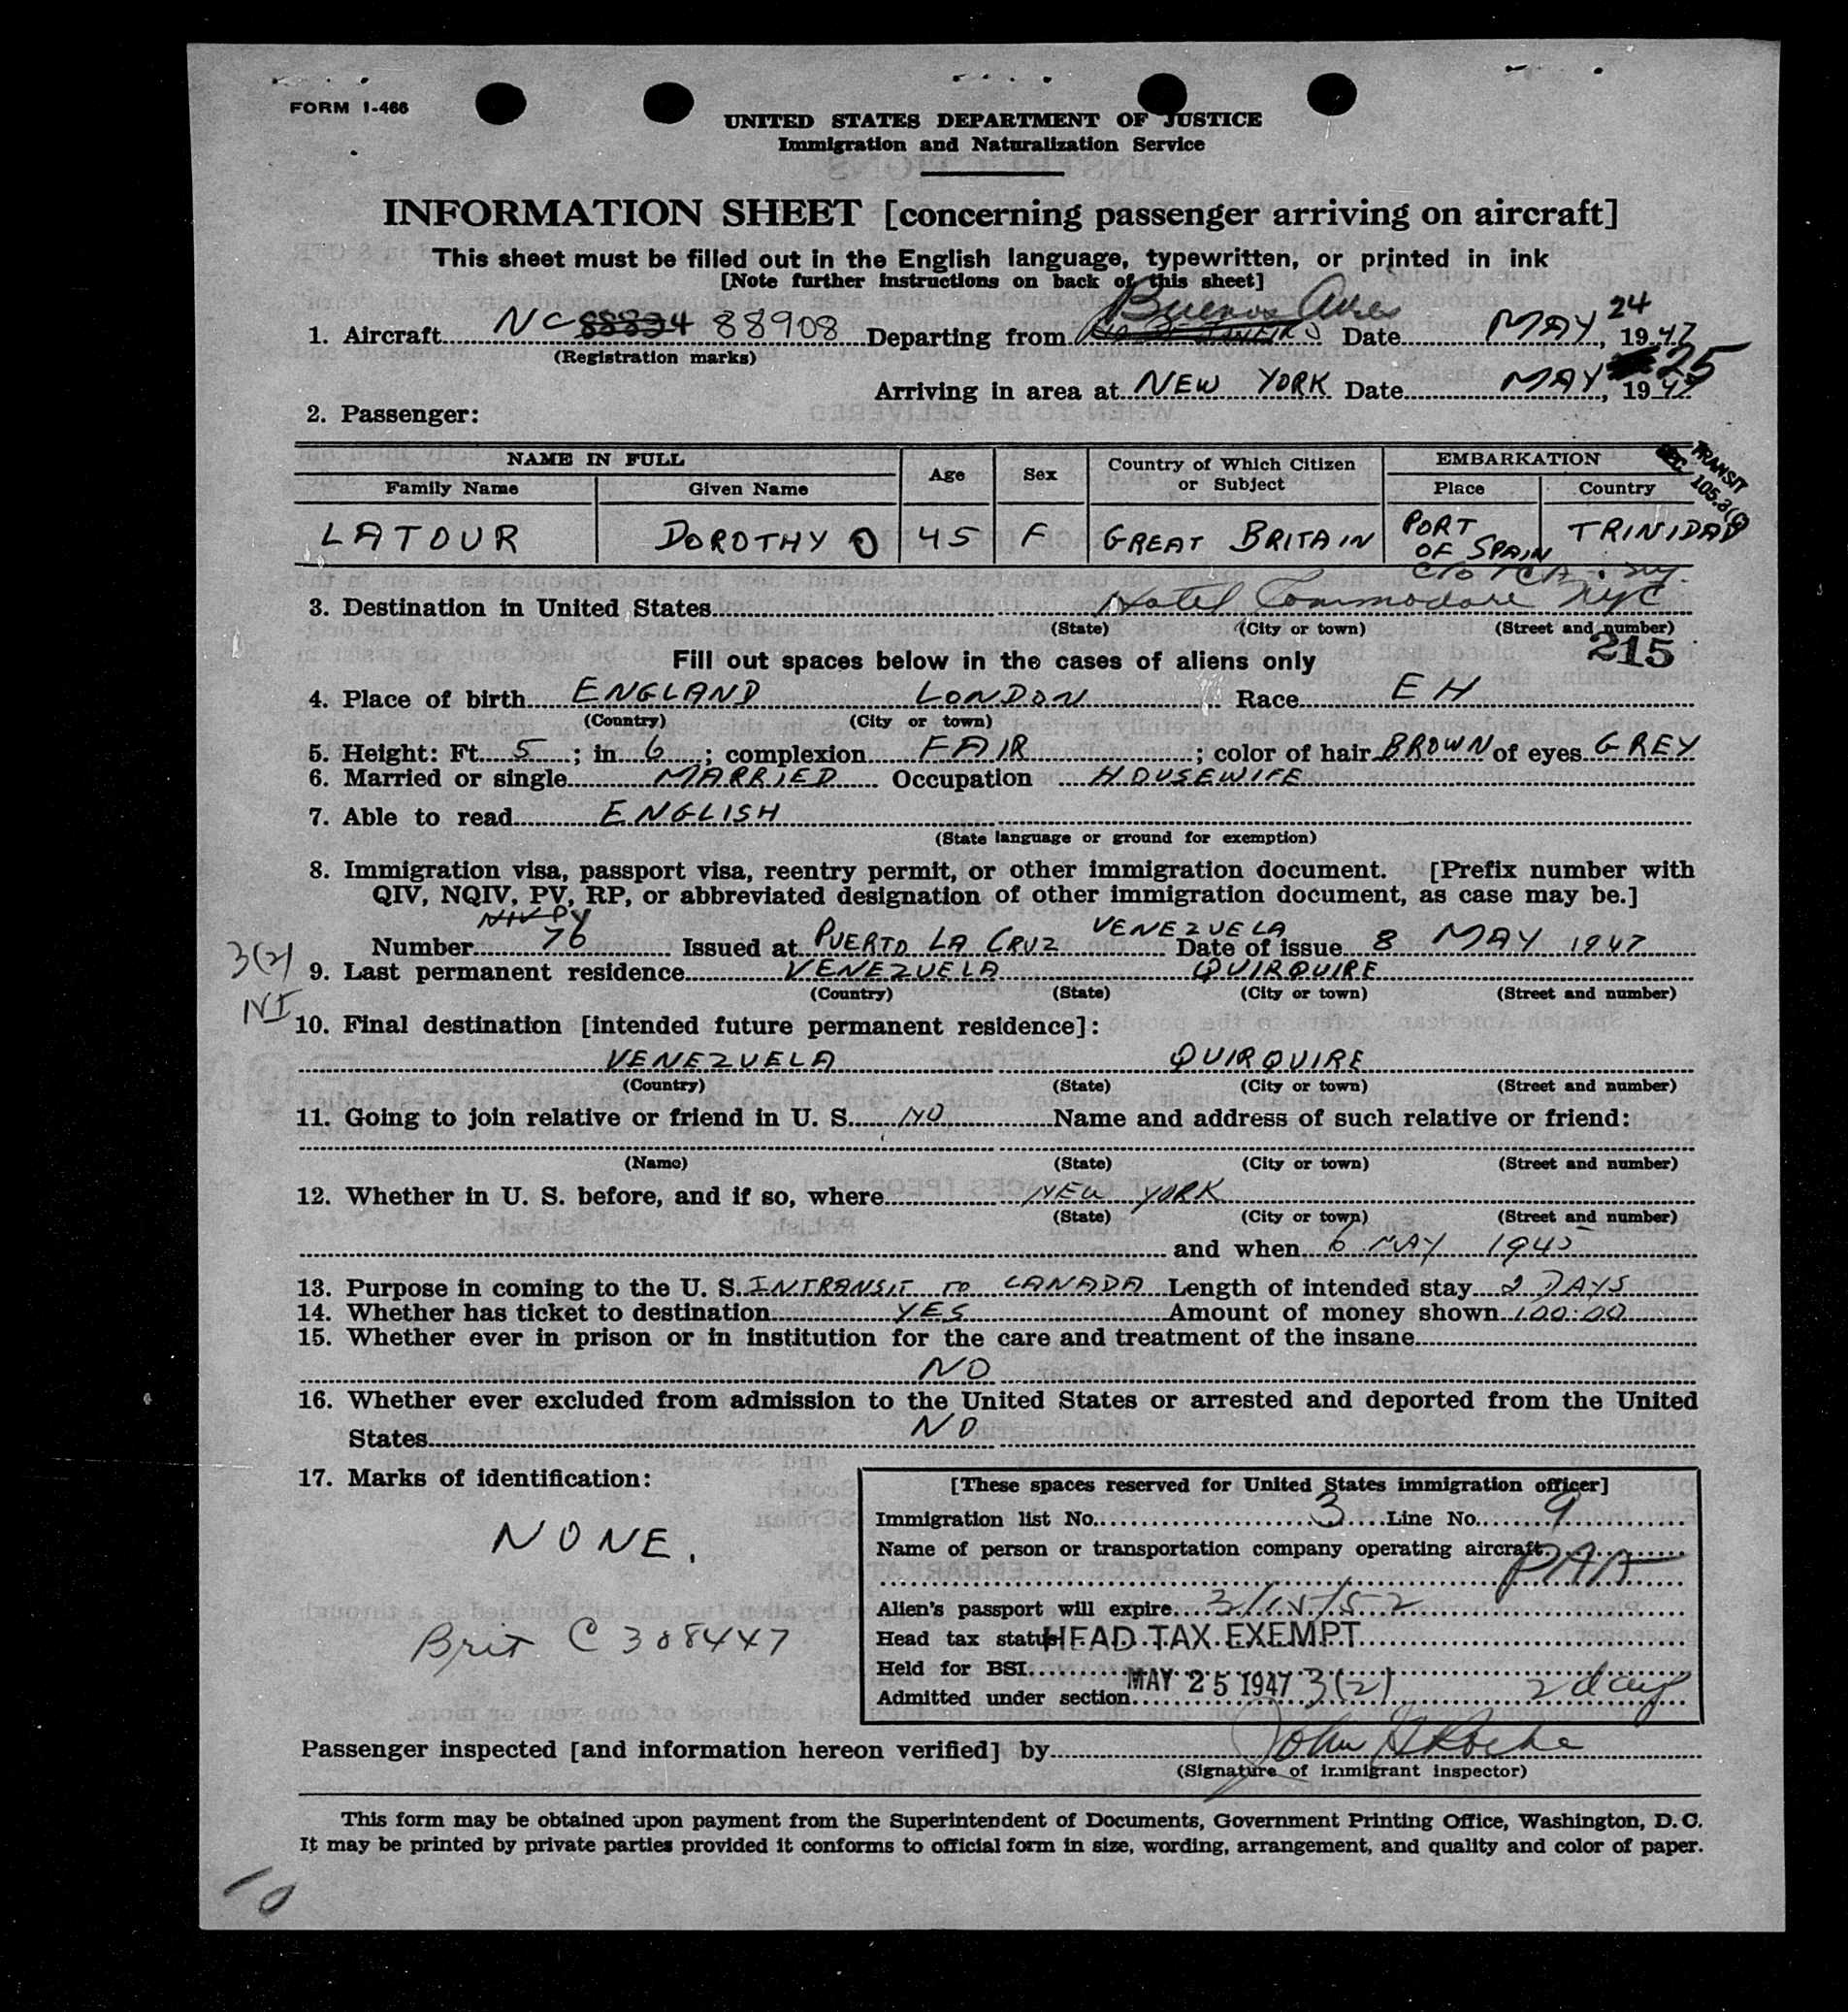 FORM I-466
UNITED STATES DEPARTMENT OF JUSTICE
Immigration and Naturalization Service
INFORMATION SHEET [concerning passenger arriving on aircraft]
This sheet must be filled out in the English language, typewritten, or printed in ink
[Note further instructions on back of this sheet]
Buenos Aires 24
1. Aircraft NC 88834 88908 Departing from RIO DE JANEIRO Date MAY, 1947
(Registration marks)
25
Arriving in area at NEW YORK Date MAY, 1947
2. Passenger:
NAME IN FULL Age Sex Country of Which Citizen or Subject EMBARKATION
Family Name Given Name Place Country
TRANSIT
SEC. 105.3(
LATOUR DOROTHY O 45 F GREAT BRITAIN PORT OF SPAIN TRINIDAD
c/o TCA
3. Destination in United States Hotel Commodore NYC
(State) (City or town) (Street and number)
215
Fill out spaces below in the cases of aliens only
4. Place of birth ENGLAND LONDON Race EH
(Country) (City or town)
5. Height: Ft. 5; in. 6; complexion FAIR; color of hair BROWN of eyes GREY
6. Married or single MARRIED Occupation HOUSEWIFE
7. Able to read ENGLISH
(State language or ground for exemption)
8. Immigration visa, passport visa, reentry permit, or other immigration document. [Prefix number with
QIV, NQIV, PV, RP, or abbreviated designation of other immigration document, as case may be.]
NIV PV
Number 76 Issued at PUERTO LA CRUZ VENEZUELA Date of issue 8 MAY 1947
3(2)
9. Last permanent residence VENEZUELA QUIRQUIRE
(Country) (State) (City or town) (Street and number)
NI
10. Final destination [intended future permanent residence]:
VENEZUELA QUIRQUIRE
(Country) (State) (City or town) (Street and number)
11. Going to join relative or friend in U. S. NO Name and address of such relative or friend:
(Name) (State) (City or town) (Street and number)
12. Whether in U. S. before, and if so, where NEW YORK
(State) (City or town) (Street and number)
and when 6 MAY 1945
13. Purpose in coming to the U. S. INTRANSIT TO CANADA Length of intended stay 2 DAYS
14. Whether has ticket to destination YES Amount of money shown 100.00
15. Whether ever in prison or in institution for the care and treatment of the insane
NO
16. Whether ever excluded from admission to the United States or arrested and deported from the United
States NO
17. Marks of identification:
NONE.
Brit C 308447
[These spaces reserved for United States immigration officer]
Immigration list No. 3 Line No. 9
Name of person or transportation company operating aircraft
PAA
Alien's passport will expire 3/15/52
Head tax status HEAD TAX EXEMPT
Held for BSI
Admitted under section MAY 25 1947 3(2) 2 days
Passenger inspected [and information hereon verified] by John
(Signature of immigrant inspector)
This form may be obtained upon payment from the Superintendent of Documents, Government Printing Office, Washington, D. C.
It may be printed by private parties provided it conforms to official form in size, wording, arrangement, and quality and color of paper.
10